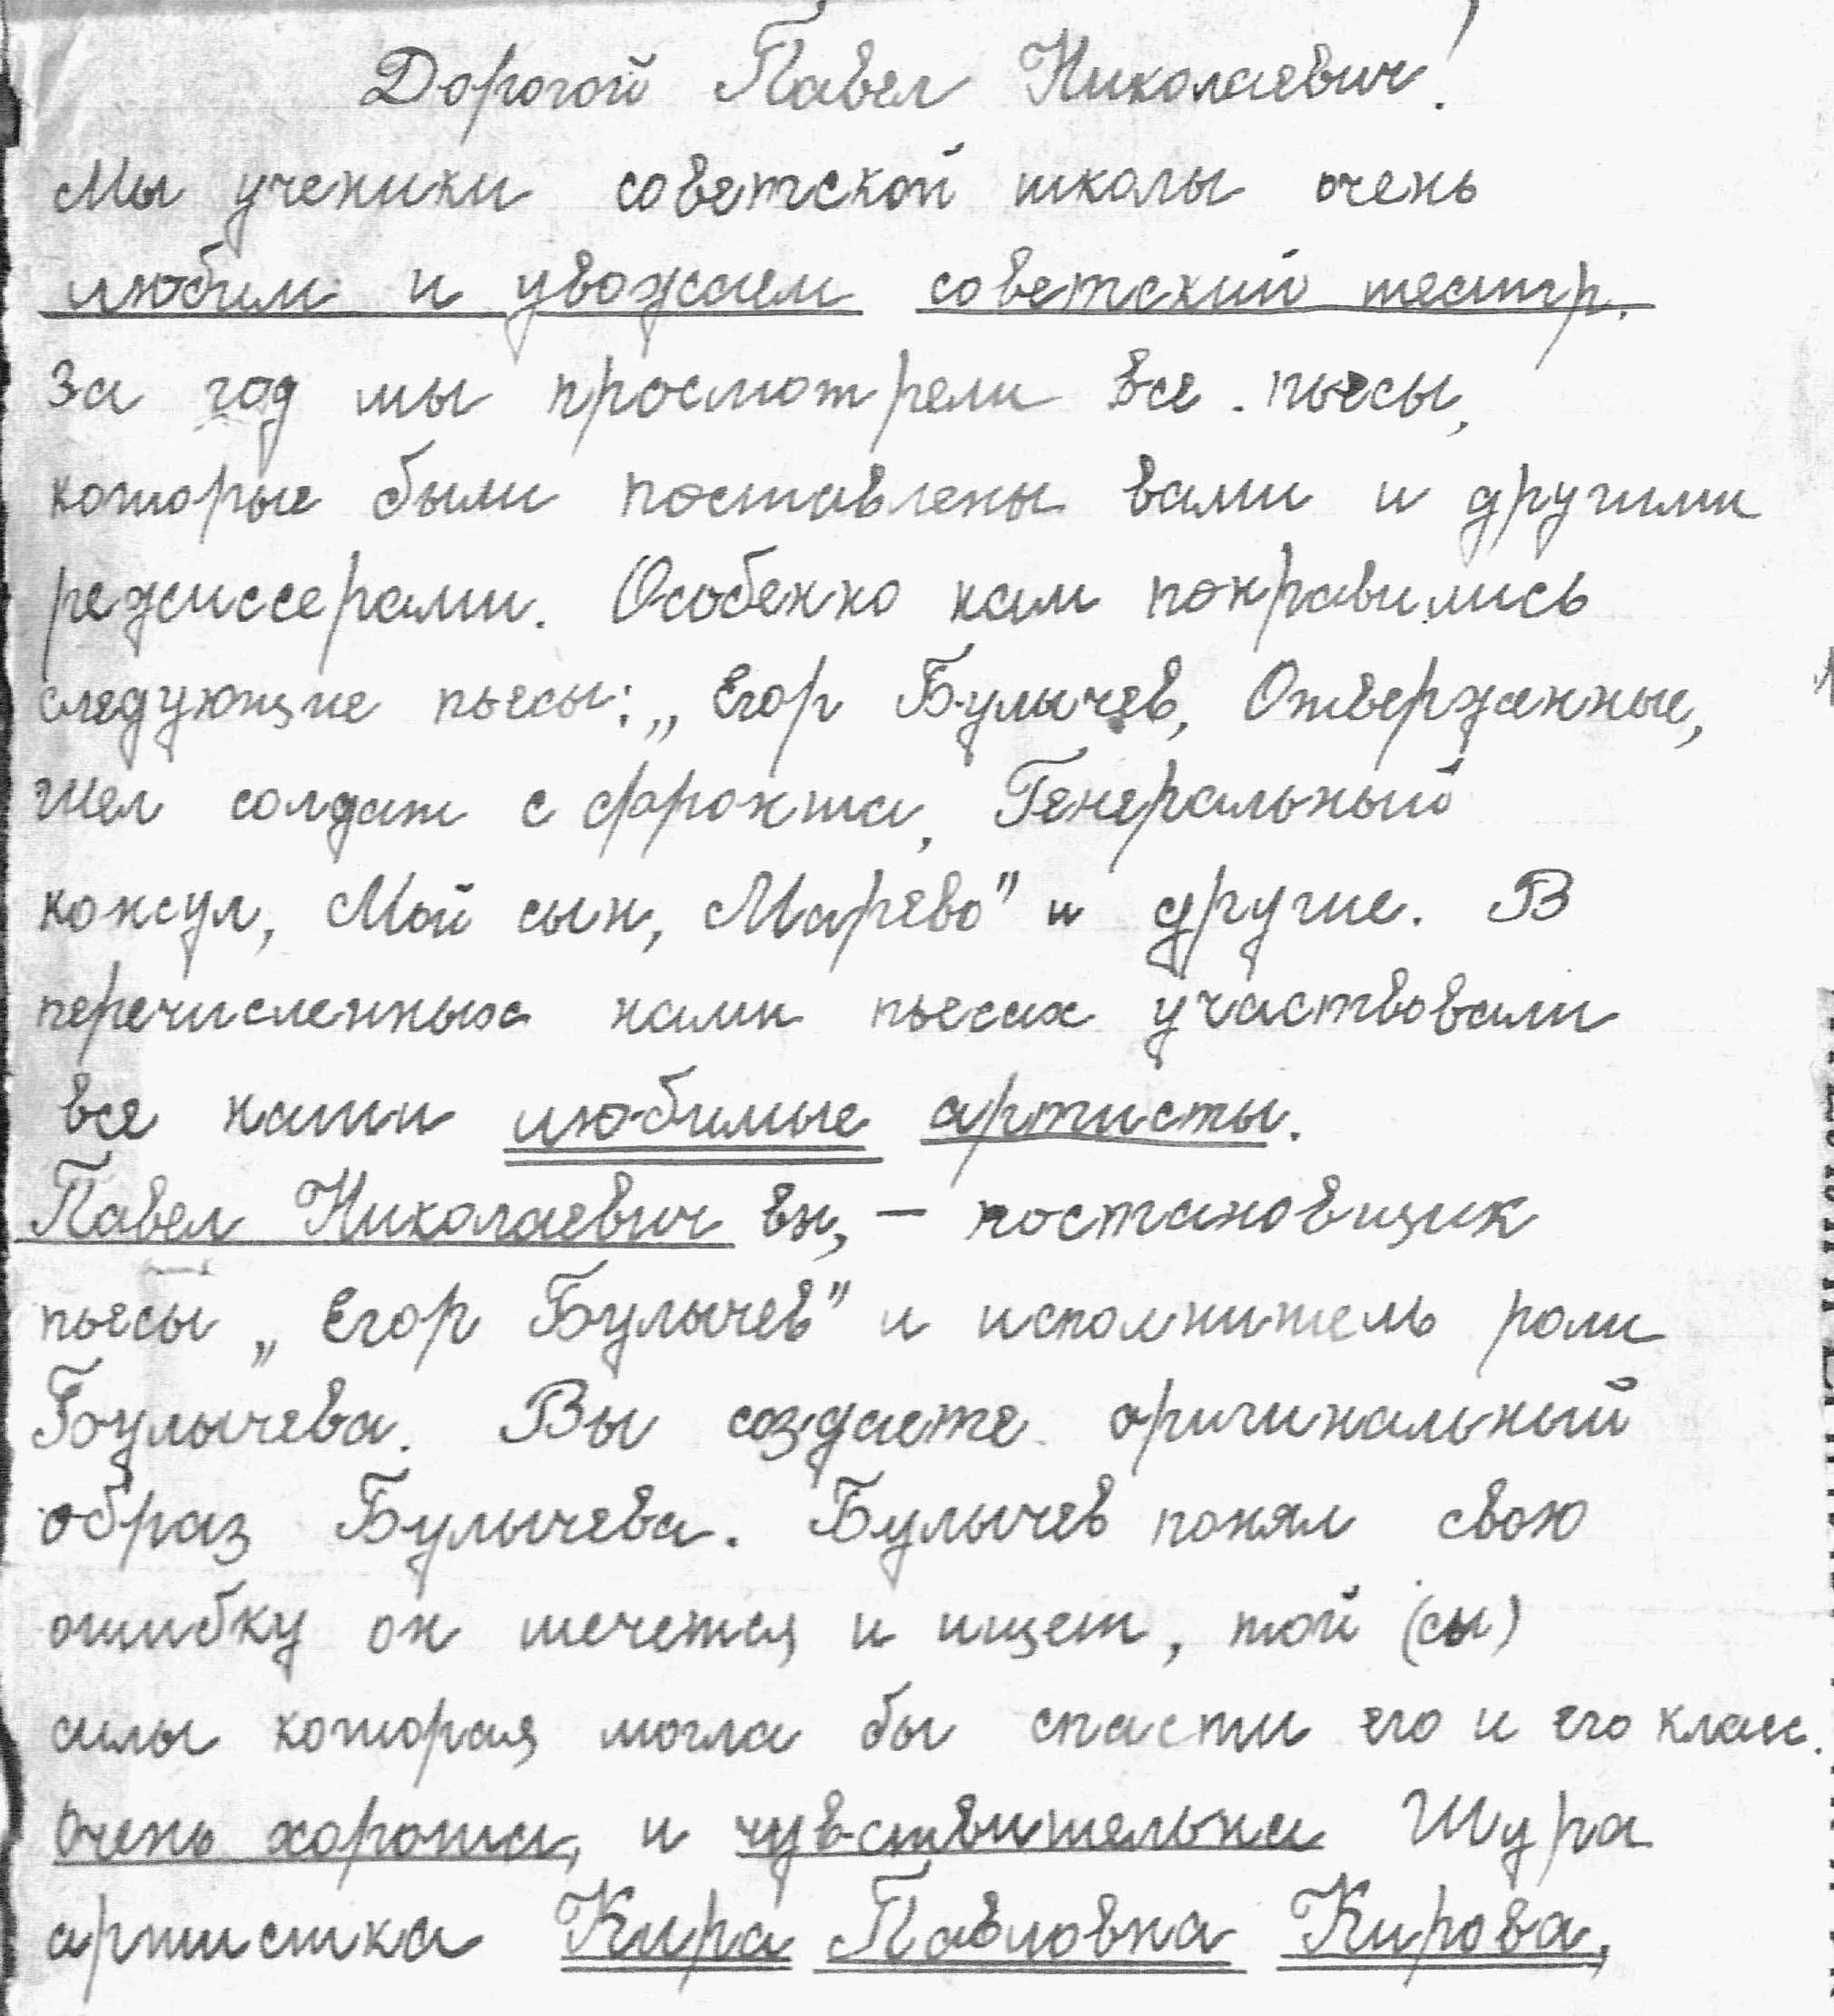 Дорогой Павел Николаевич!
Мы ученики советской школы очень
любим и уважаем советский театр.
За год мы просмотрели все пьесы,
которые были поставлены вами и другими
режиссерами. Особенно нам понравились
следующие пьесы: „Егор Булычев, Отверженные,
Шел солдат с фронта, Генеральный
консул, Мой сын, Марево" и другие. В
перечисленных нами пьесах участвовали
все наши любимые артисты.
Павел Николаевич вы, – постановщик
пьесы „Егор Булычев" и исполнитель роли
Булычева. Вы создаете оригинальный
образ Булычева. Булычев понял свою
ошибку он мечется и ищет, той (сы)
силы которая могла бы спасти его и его класс.
Очень хороша, и чувствительна Шура
артистка Кира Павловна Кирова,